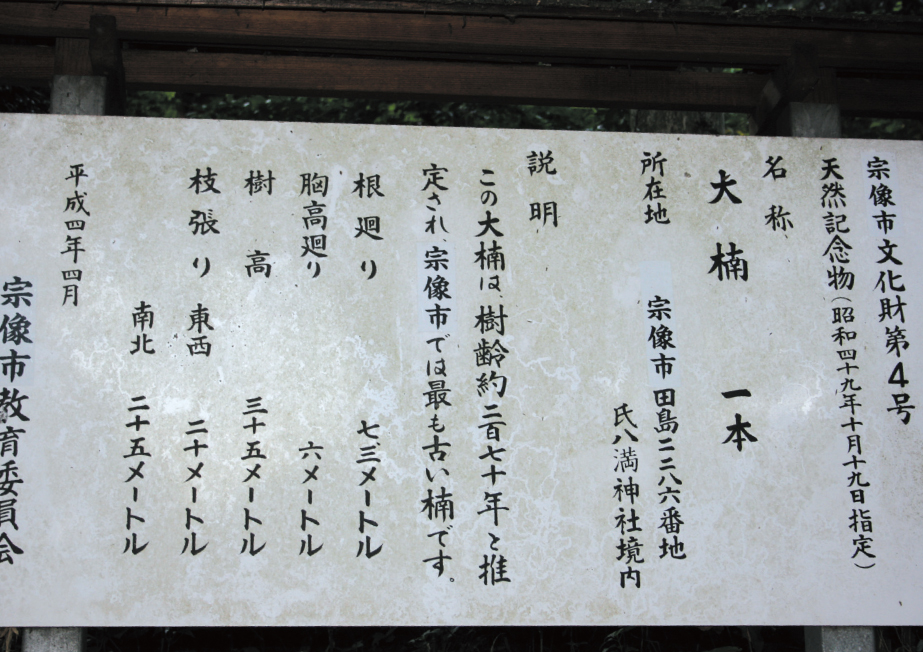 宗像市文化財第4号
天然記念物(昭和四十九年十月十九日指定)
名称
大楠 一本
所在地
宗像市田島二二八六番地
氏八満神社境内
説明
この大楠は、樹齢約二百七十年と推
定され、宗像市では最も古い楠です。
根廻り 七・三メートル
胸高廻り 六メートル
樹高 三十五メートル
枝張り 東西 二十メートル
南北 二十五メートル
平成四年四月
宗像市教育委員会